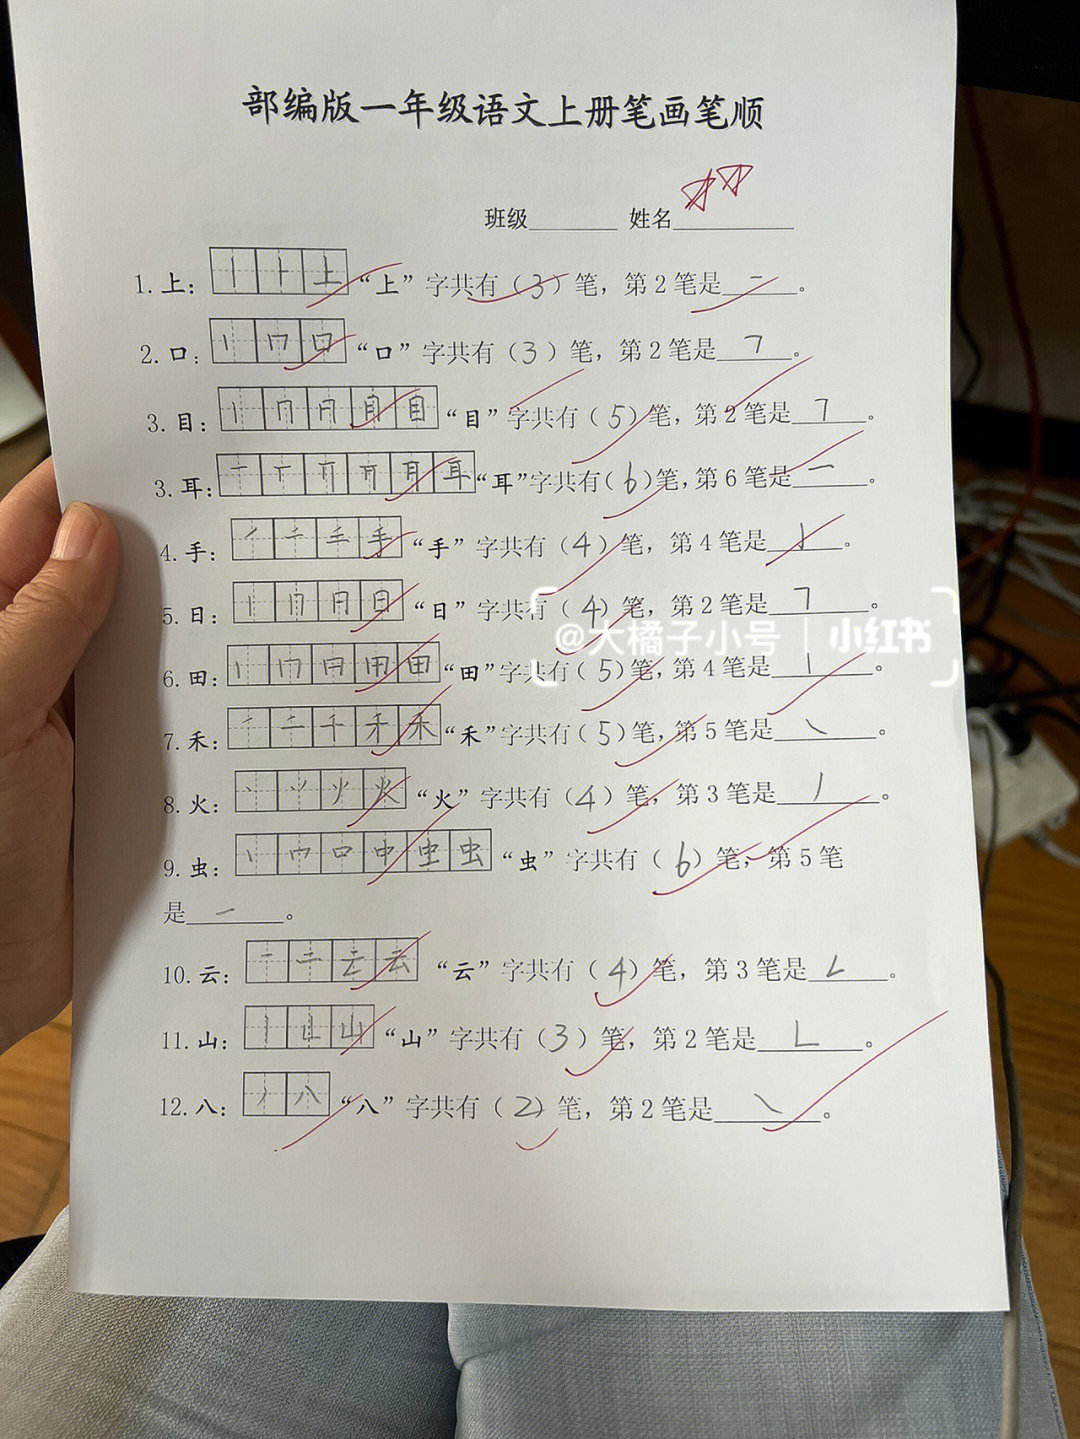 部编版一年级语文上册笔画笔顺
班级________ 姓名__________
1.上: 丨 ⺊ 上 “上”字共有(3)笔，第2笔是一。
2.口: 丨 冂 口 “口”字共有(3)笔，第2笔是㇕。
3.目: 丨 冂 目 “目”字共有(5)笔，第2笔是㇕。
3.耳: 一 丅 耳 “耳”字共有(6)笔，第6笔是一。
4.手: 手 “手”字共有(4)笔，第4笔是亅。
5.日: 丨 冂 日 “日”字共有(4)笔，第2笔是㇕。
6.田: 丨 冂 田 “田”字共有(5)笔，第4笔是丨。
7.禾: 一 二 千 禾 “禾”字共有(5)笔，第5笔是㇏。
8.火: 丶 火 “火”字共有(4)笔，第3笔是丿。
9.虫: 丨 冂 口 中 虫 “虫”字共有(6)笔，第5笔
是一。
10.云: 一 二 云 “云”字共有(4)笔，第3笔是㇜。
11.山: 丨 山 “山”字共有(3)笔，第2笔是㇗。
12.八: 丿 八 “八”字共有(2)笔，第2笔是㇏。
@大橘子小号 | 小红书